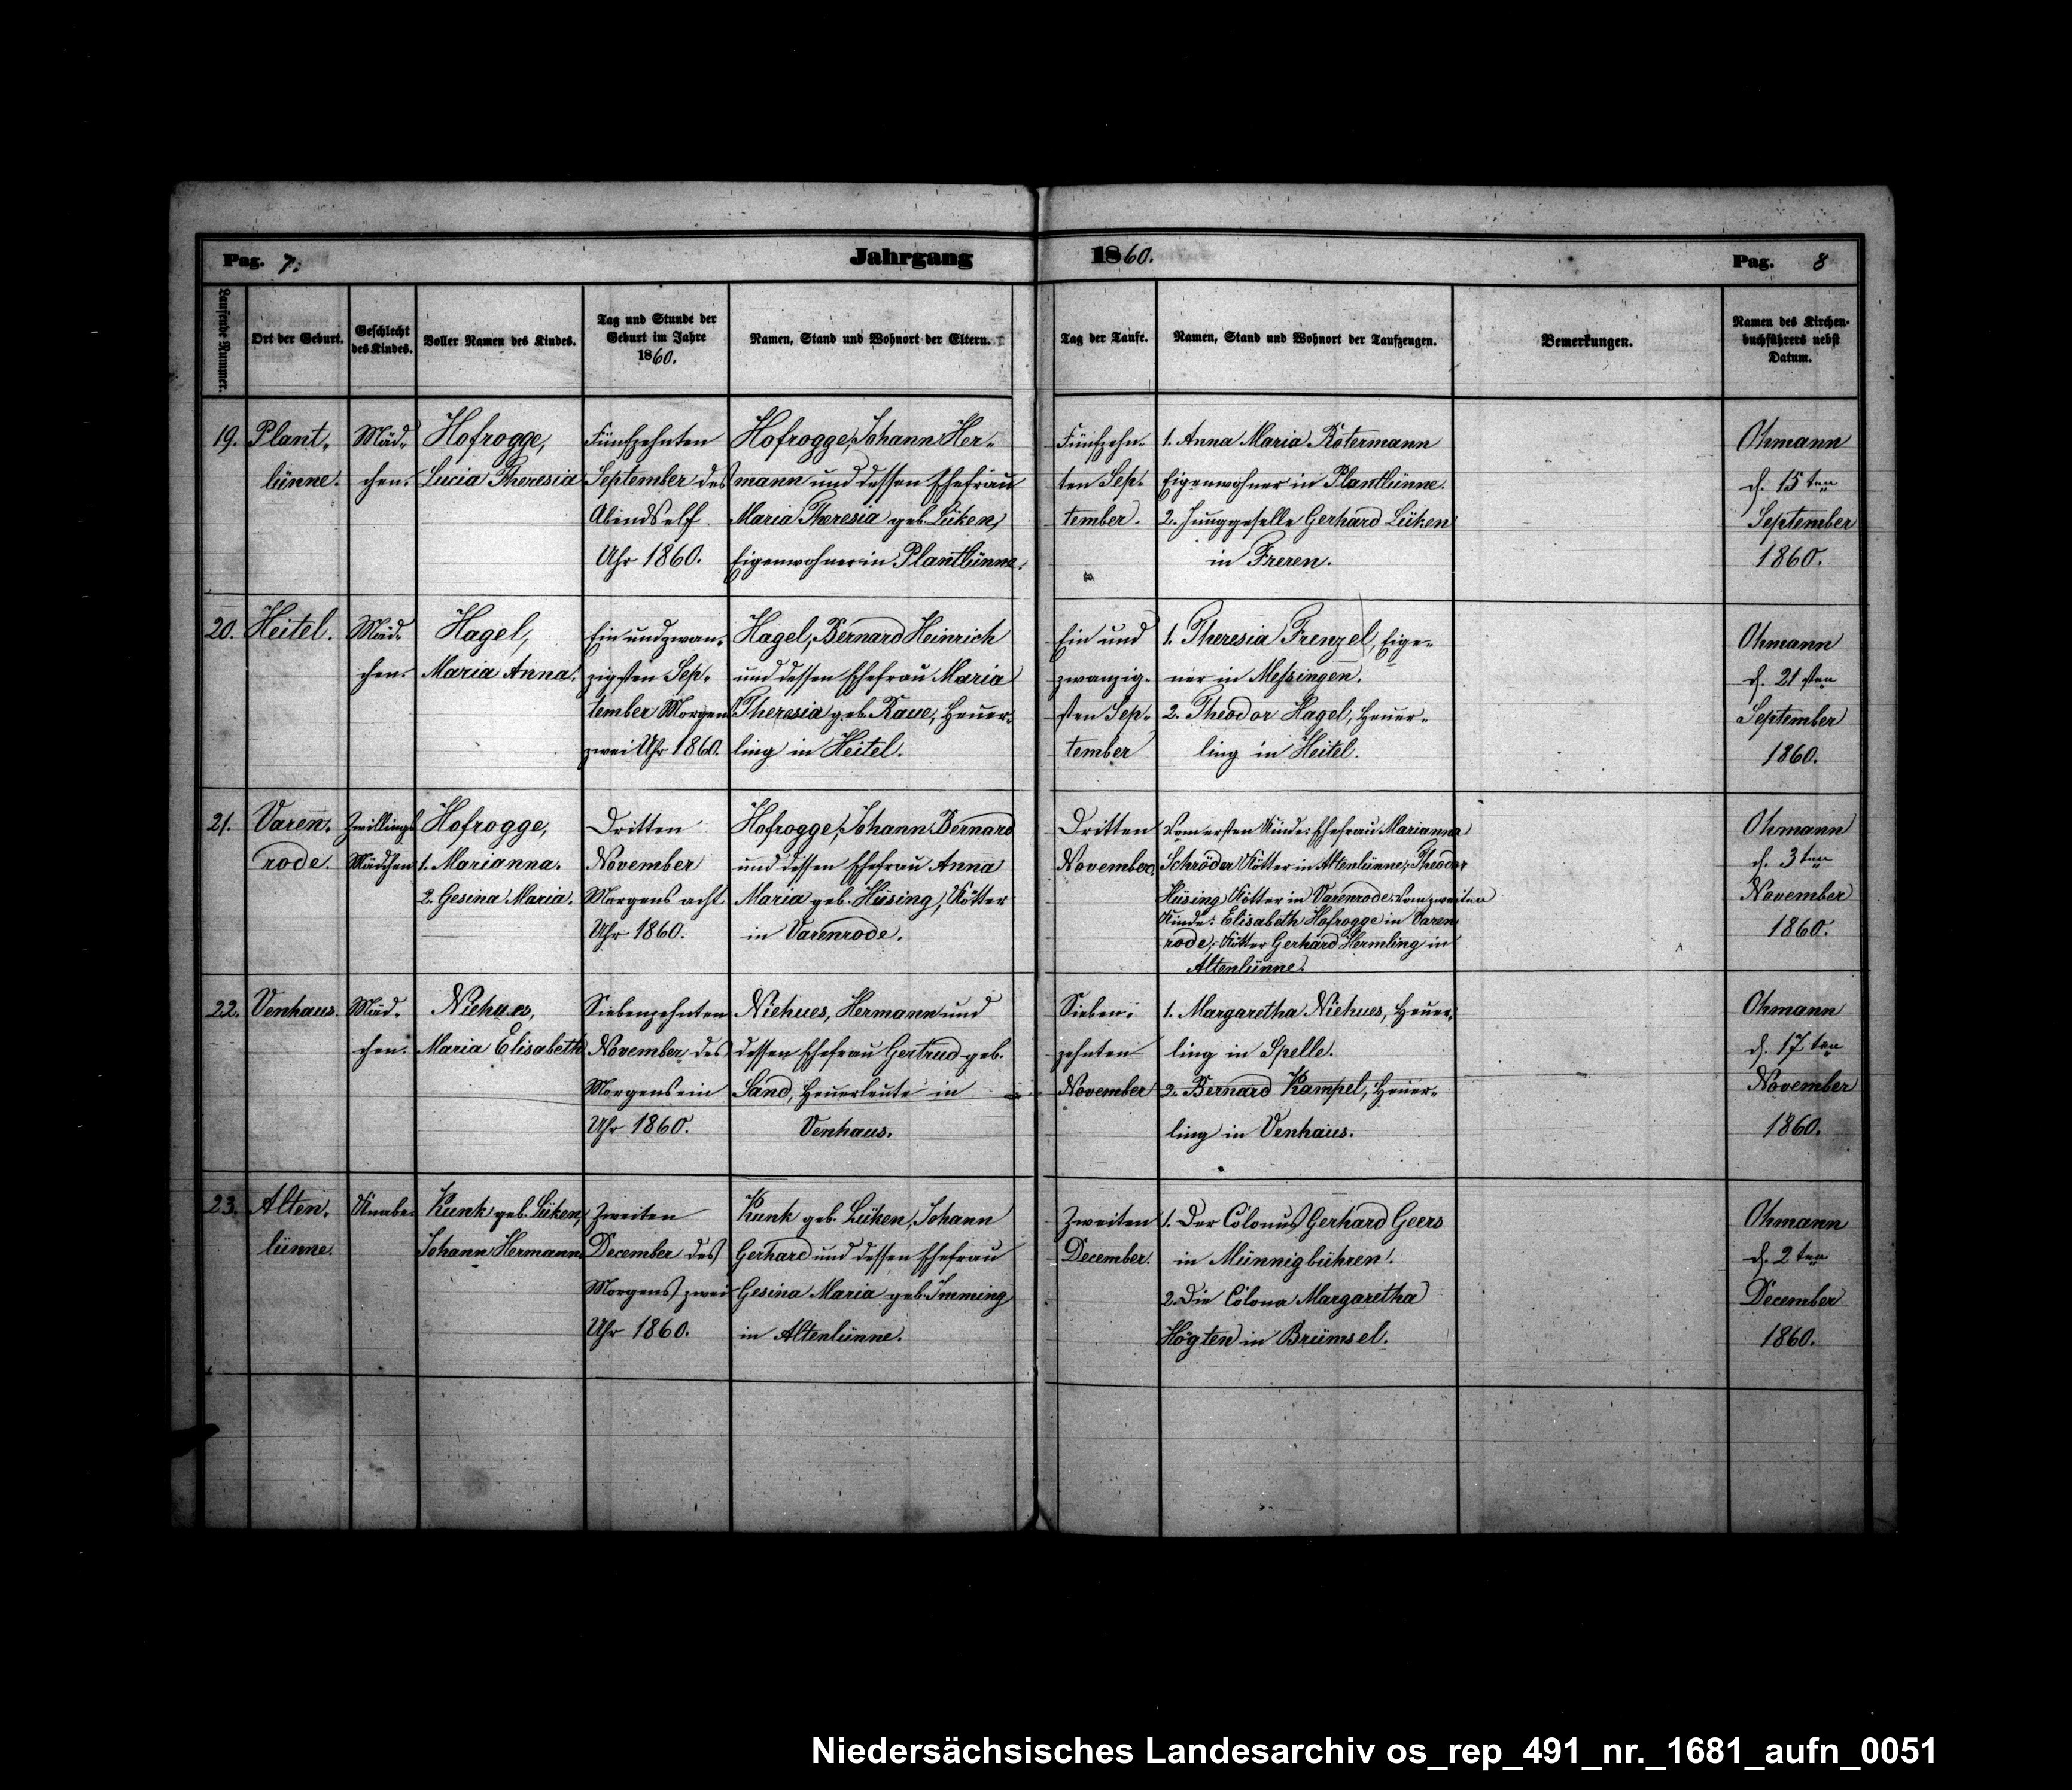 Pag. 7.
Jahrgang
1860.
Pag. 8
Laufende Nummer.
Ort der Geburt.
Geschlecht
des Kindes.
Voller Namen des Kindes.
Tag und Stunde der
Geburt im Jahre
1860.
Namen, Stand und Wohnort der Eltern.
Tag der Taufe.
Namen, Stand und Wohnort der Taufzeugen.
Bemerkungen.
Namen des Kirchen-
buchführers nebst
Datum.
19.
Plant-
lünne.
Mäd-
chen.
Hofrogge,
Lucia Theresia
Fünfzehnten
September des
Abends elf
Uhr 1860.
Hofrogge, Johann Her-
mann und dessen Ehefrau
Maria Theresia geb. Lüken,
Eigenwohner in Plantlünne.
Fünfzehn-
ten Sep-
tember.
1. Anna Maria Kotermann
Eigenwohner in Plantlünne.
2. Junggeselle Gerhard Lüken
in Freren.
Ohmann
d. 15ten
September
1860.
20.
Heitel.
Mäd-
chen.
Hagel,
Maria Anna.
Ein und zwan-
zigsten Sep-
tember Morgens
zwei Uhr 1860.
Hagel, Bernard Heinrich
und dessen Ehefrau Maria
Theresia geb. Raue, Heuer-
ling in Heitel.
Ein und
zwanzig-
sten Sep-
tember
1. Theresia Frenzel, Eige-
ner in Messingen.
2. Theodor Hagel, Heuer-
ling in Heitel.
Ohmann
d. 21sten
September
1860.
21.
Varen-
rode.
Zwillings
Mädchen
Hofrogge,
1. Marianna.
2. Gesina Maria.
Dritten
November
Morgens acht
Uhr 1860.
Hofrogge, Johann Bernard
und dessen Ehefrau Anna
Maria geb. Hüsing, Kötter
in Varenrode.
Dritten
November.
Vom ersten Kinde: Ehefrau Marianna
Schröder Kötter in Altenlünne; Theodor
Hüsing Kötter in Varenrode. Vom zweiten
Kinde: Elisabeth Hofrogge in Varen
rode; Kötter Gerhard Hermling in
Altenlünne.
Ohmann
d. 3ten
November
1860.
22.
Venhaus.
Mäd-
chen.
Niehues,
Maria Elisabeth
Siebenzehnten
November des
Morgens ein
Uhr 1860.
Niehues, Hermann und
dessen Ehefrau Gertrud geb.
Sand, Heuerleute in
Venhaus.
Sieben-
zehnten
November
1. Margaretha Niehues, Heuer-
ling in Spelle.
2. Bernard Kampel, Heuer-
ling in Venhaus.
Ohmann
d. 17ten
November
1860.
23.
Alten-
lünne.
Knabe
Kunk geb. Lüken,
Johann Hermann
Zweiten
December des
Morgens zwei
Uhr 1860.
Kunk geb. Lüken, Johann
Gerhard und dessen Ehefrau
Gesina Maria geb. Imming
in Altenlünne.
Zweiten
December.
1. Der Colonus Gerhard Geers
in Münnigbühren.
2. Die Colona Margaretha
Högten in Brümsel.
Ohmann
d. 2ten
December
1860.
Niedersächsisches Landesarchiv os_rep_491_nr._1681_aufn_0051